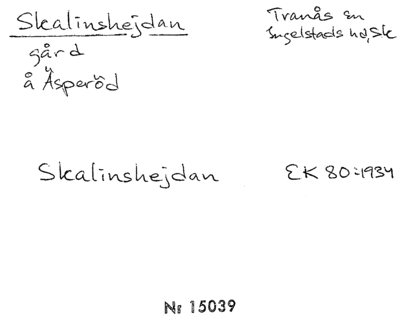 Skalinshejdan
gård
å Äsperöd
Tranås sn
Ingelstads hd, Sk
Skalinshejdan
EK 80:1934
Nr 15039